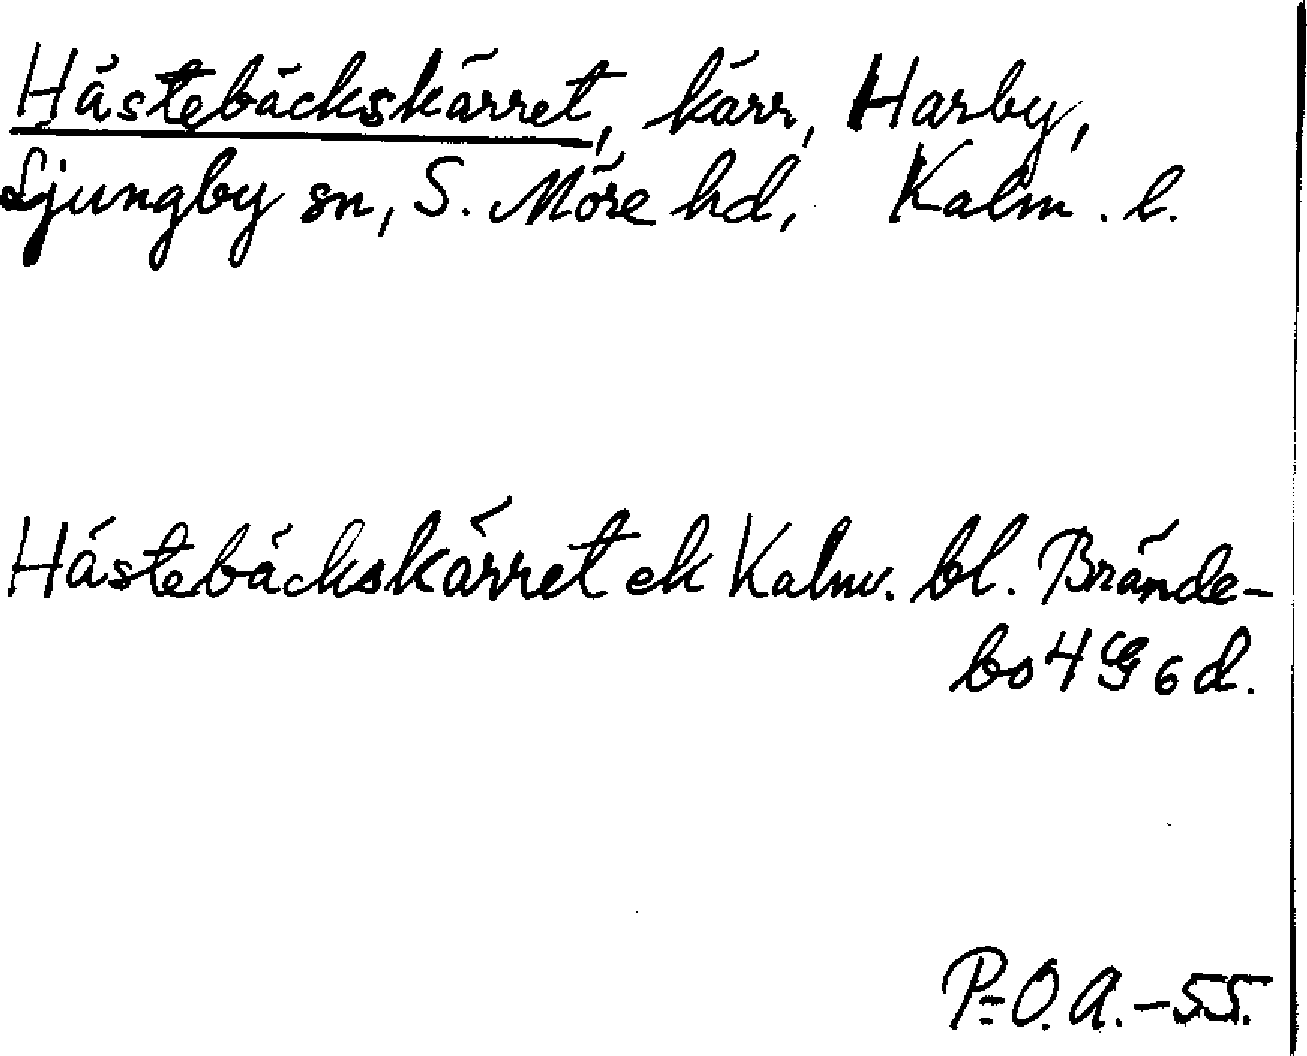 Hästebäckskärret, kärr, Harby,
Ljungby sn, S. Möre hd, Kalm. l.
Hästebäckskärret ek Kalm. bl. Brände-
bo 4 G 6 d.
P-O.A.-55.